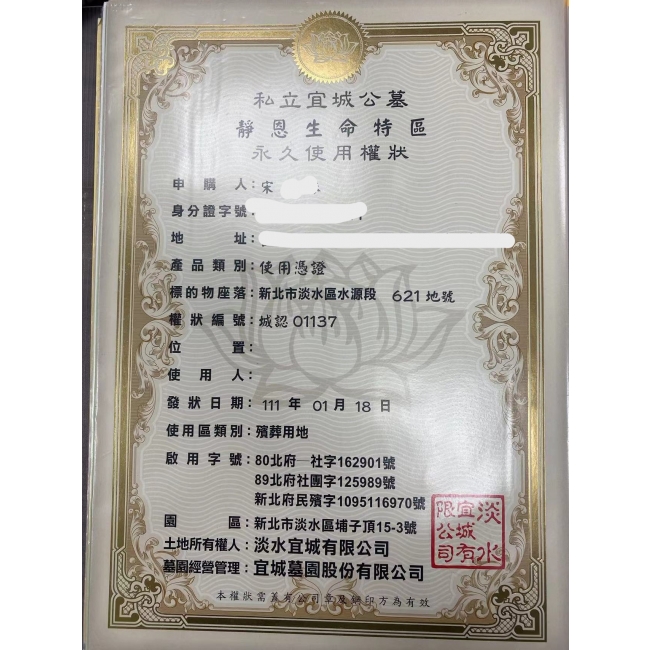 私立宜城公墓
靜恩生命特區
永久使用權狀
申購人：宋
身分證字號：
地址：
產品類別：使用憑證
標的物座落：新北市淡水區水源段 621 地號
權狀編號：城認 01137
位置：
使用人：
發狀日期：111 年 01 月 18 日
使用區類別：殯葬用地
啟用字號：80北府一社字162901號
89北府社團字125989號
新北府民殯字1095116970號
園區：新北市淡水區埔子頂15-3號
土地所有權人：淡水宜城有限公司
墓園經營管理：宜城墓園股份有限公司
淡水宜城有限公司
本權狀需蓋有公司章及鋼印方為有效